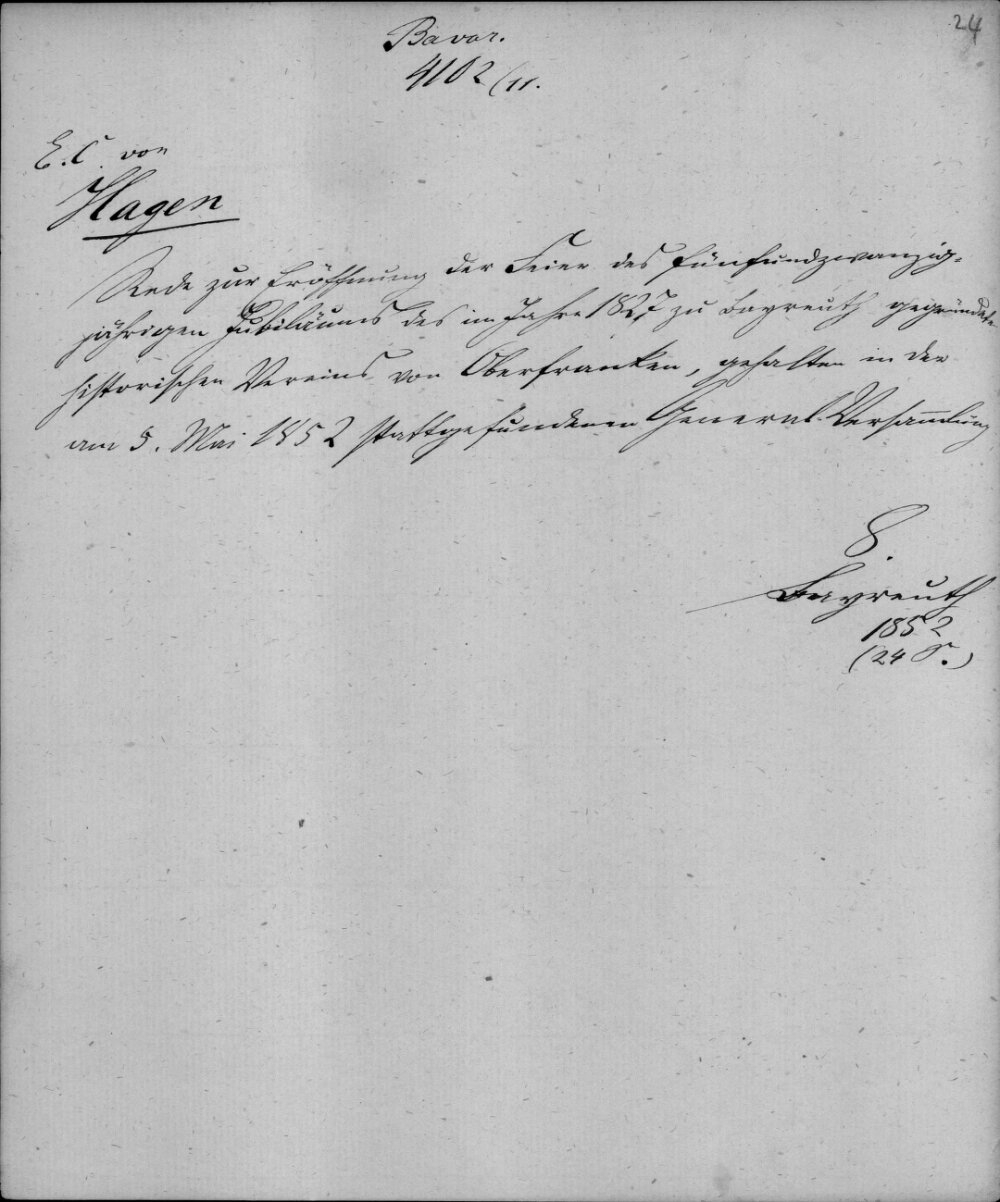 24
Bavar.
4102 (11.
E. C. von
Hagen
Rede zur Eröffnung der Feier des fünfundzwanzig-
jährigen Jubiläums des im Jahre 1827 zu Bayreuth gegründeten
historischen Vereins von Oberfranken, gehalten in der
am 5. Mai 1852 stattgefundenen General-Versammlung
8.
Bayreuth
1852
(24 S.)